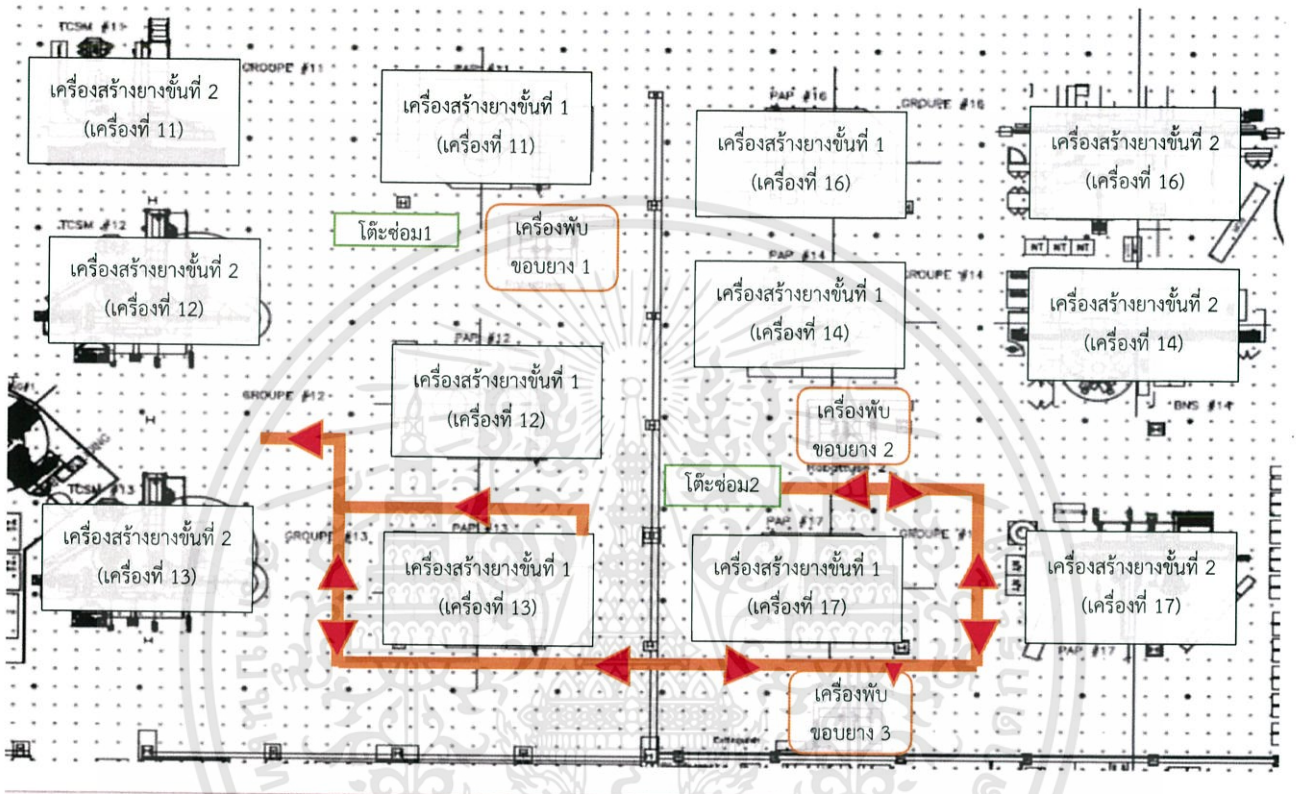 TCSM #11
GROUPE #11
เครื่องสร้างยางขั้นที่ 2
(เครื่องที่ 11)
PAP #11
เครื่องสร้างยางขั้นที่ 1
(เครื่องที่ 11)
PAP #16
GROUPE #16
เครื่องสร้างยางขั้นที่ 1
(เครื่องที่ 16)
เครื่องสร้างยางขั้นที่ 2
(เครื่องที่ 16)
โต๊ะซ่อม1
เครื่องพับ
ขอบยาง 1
TCSM #12
เครื่องสร้างยางขั้นที่ 2
(เครื่องที่ 12)
INT INT INT
PAP #14
GROUPE #14
เครื่องสร้างยางขั้นที่ 1
(เครื่องที่ 14)
เครื่องสร้างยางขั้นที่ 2
(เครื่องที่ 14)
PAP #12
GROUPE #12
เครื่องสร้างยางขั้นที่ 1
(เครื่องที่ 12)
เครื่องพับ
ขอบยาง 2
BNS #14
โต๊ะซ่อม2
TCSM #13
เครื่องสร้างยางขั้นที่ 2
(เครื่องที่ 13)
GROUPE #13
PAP #13
เครื่องสร้างยางขั้นที่ 1
(เครื่องที่ 13)
PAP #17
GROUPE #1
เครื่องสร้างยางขั้นที่ 1
(เครื่องที่ 17)
เครื่องสร้างยางขั้นที่ 2
(เครื่องที่ 17)
PAP #17
เครื่องพับ
ขอบยาง 3